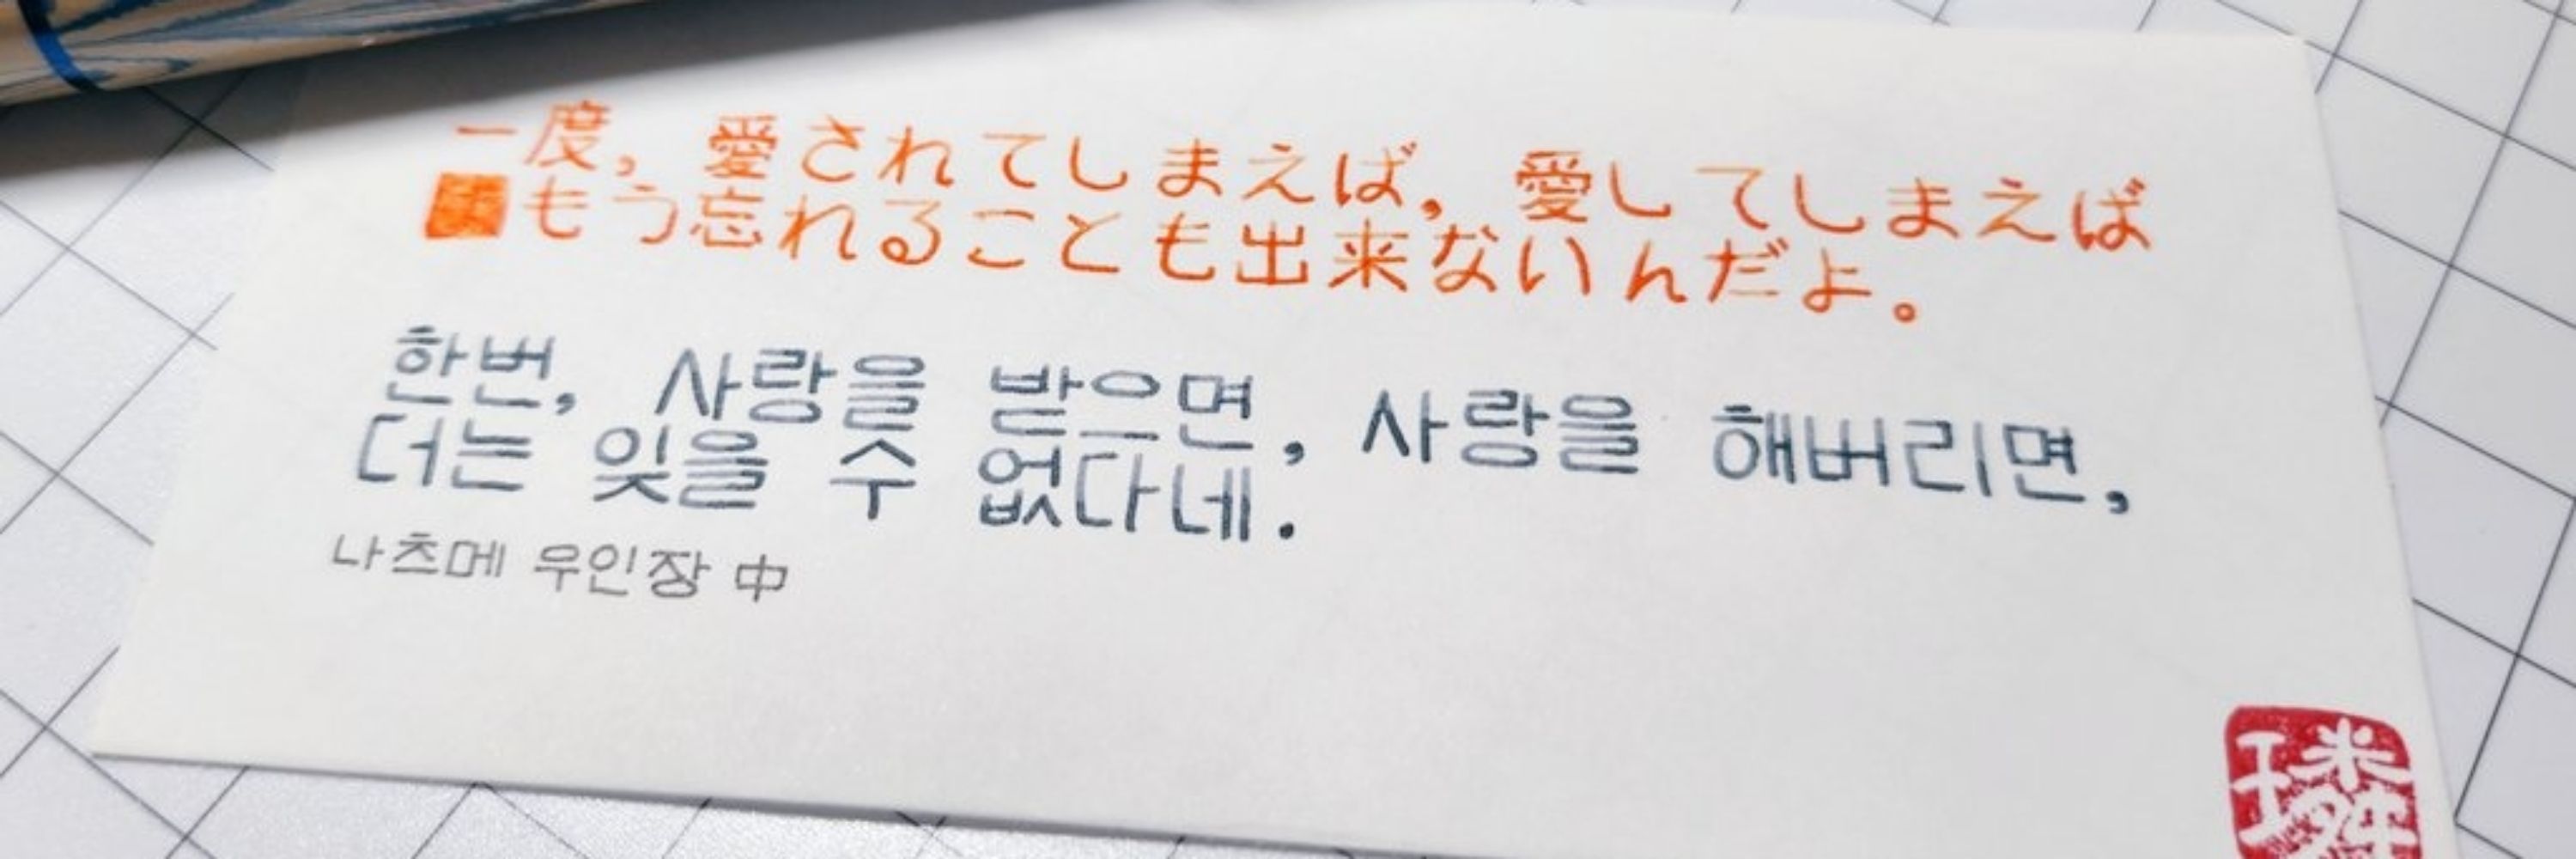 一度, 愛されてしまえば, 愛してしまえば
もう忘れることも出来ないんだよ。
한번, 사랑을 받으면, 사랑을 해버리면,
더는 잊을 수 없다네.
나츠메 우인장 中
璘